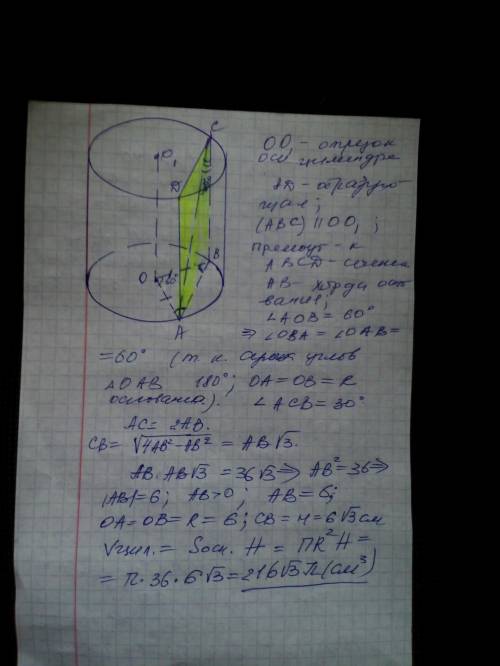 O₁
C
D
O
60°
B
A
OO₁ - отрезок
оси цилиндра
AD - образую-
щая;
(ABC) || OO₁ ;
прямоуг-к
ABCD - сечение
AB - хорда осно-
вания;
∠AOB = 60°
⇒ ∠OBA = ∠OAB =
= 60° (т.к. сумма углов
△OAB 180°; OA = OB = R
основания). ∠ACB = 30°
AC = 2AB.
CB = √4AB² - AB² = AB√3.
AB · AB√3 = 36√3 ⇒ AB² = 36 ⇒
|AB| = 6; AB > 0; AB = 6;
OA = OB = R = 6; CB = H = 6√3 см
Vцил. = Sосн. H = ПR²H =
= П · 36 · 6√3 = 216√3 П (см³)